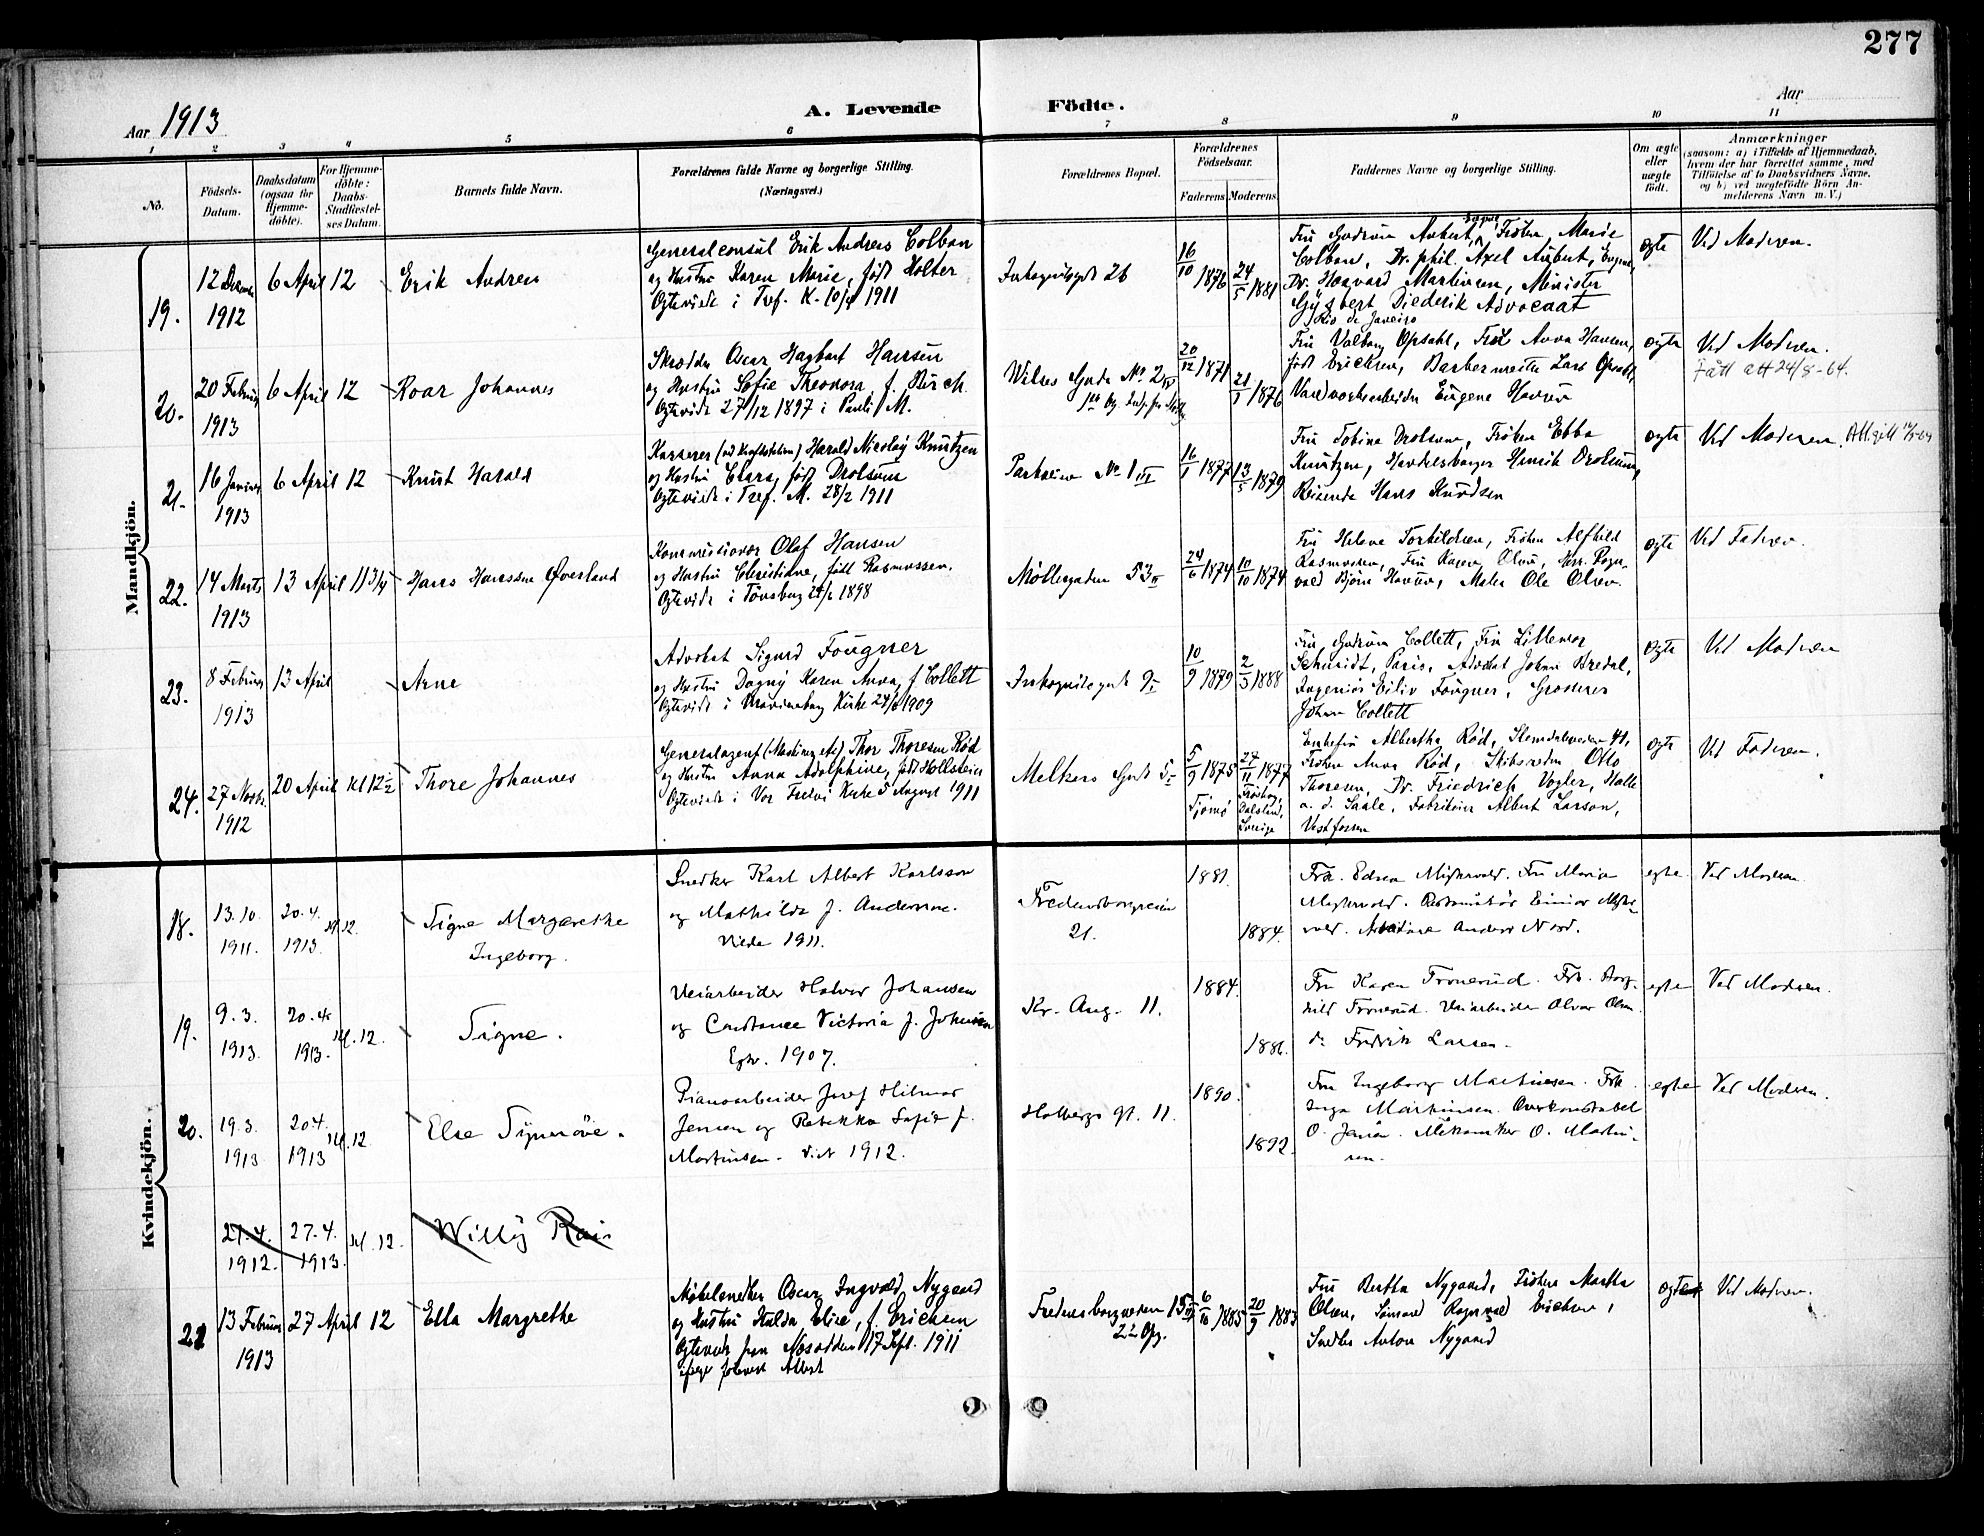 277
Aar 1913
A. Levende Födte.
Aar
1 2 3 4 5 6 7 8 9 10 11
No.
Födsels-Datum.
Daabsdatum (ogsaa for Hjemme-döbte).
For Hjemme-döbte: Daabs-Stadfæstel-ses Datum.
Barnets fulde Navn.
Forældrenes fulde Navne og borgerlige Stilling.
(Næringsvei.)
Forældrenes Bopæl.
Forældrenes Födselsaar.
Faderens Moderens
Faddernes Navne og borgerlige Stilling.
Om ægte eller uægte födt.
Anmærkninger
(saasom: a) i Tilfælde af Hjemmedaab,
hvem der har forrettet samme, med
Tilföielse af to Daabsvidners Navne,
og b) ved uægtefödte Börn An-
melderens Navn m. V.)
Mandkjön.
19.
12 1912
6 April 12
Erik Andreas
Generalconsul Erik Andreas Colban
og Hustru Karen Marie, født Holter
Ogteviede i Tref. K. 1911
26
16/10 1876
24/5 1881
Fru Gudrun Aubert, Frøken Marie
Colban, Dr. phil. Axel Aubert,
Dr. Haagvard Martinsen, Minister
Gijsbert Diederik Advocaat
Rio de Janeiro
ogte
Ved Moderen.
20.
20 Februar 1913
6 April 12
Roar Johannes
Skrædder Oscar Hagbart Hansen
og Hustru Sofie Theodora, f. Birch
Ogteviede 27/12 1897 i Pauli M.
Wilses Gade No 2
20/12 1871
21/1 1876
Fru Valborg Opsahl, Frøk Anna Hansen,
født Erichsen, Barbermester Lars Opsahl,
Eugene Hansen
ogte
Ved Moderen.
Fått att 24/8-64.
21.
16 Januar 1913
6 April 12
Knut Harald
Kasserer Harald Nicolay Knutzen
og Hustru Clara, født Drolsum
Ogteviede i Tref. M. 28/2 1911
Parkveien No 1 III
16/1 1877
13/5 1879
Fru Tobine Drolsum, Frøken Ebba
Knutzen, Handelsborger Henrik Drolsum,
Reisende Hans Knudsen
ogte
Ved Moderen.
22.
14 Marts 1913
13 April 1 13/4
Hans Hanssøn Øverland
Kommissionær Olaf Hansen
og Hustru Christiane, født Rasmussen.
Ogteviede i Tønsberg 1898
Møllergaden 53
24/6 1874
10/10 1874
Fru Helene Torkildsen, Frøken Alfhild
Rasmussen, Fru Karen Olsen, Herr Ragn-
vald Bjørn Hansen, Maler Ole Olsen.
ogte
Ved Faderen.
23.
8 Februar 1913
13 April
Arne
Advokat Sigurd Fougner
og Hustru Dagny Karen Anna, f. Collett
Ogteviede i Kirke 1909
Inkognitogade 9
10/9 1879
2/3 1888
Fru Gudrun Collett, Fru Lillemor
Schmidt, Paris, Advokat Johan Bredal,
Ingeniør Eiliv Fougner, Grosserer
Johan Collett
ogte
Ved Moderen
24.
27 1912
20 April Kl 12 1/2
Thore Johannes
Generalagent Thor Thoresen Rød
og Hustru Anna Adolphine, født Hollsteien
Ogteviede i Vor Frelsers Kirke 5 August 1911
5
5/9 1875
Tjømø
27/11 1877
Dalsland, Sverige
Enkefru Albertha Rød, Slemdalsveien 41,
Frøken Anna Rød, Skibsreder Otto
Thoresen, Dr. Friedrich Vogler, Halle
a. d. Saale, Fabrikeier Albert Larson,
Vestfossen
ogte
Ved Faderen.
Kvindekjön.
18.
13.10. 1911.
20.4. 1913. kl. 12.
Signe Margarethe
Ingeborg.
Snedker Karl Albert Karlsson
og Mathilde f. Andersson.
Viede 1911.
Fredensborgveien
21.
1881.
1884.
Frk. Edna Myhrvold. Fru Maria
Myhrvold. Einar Myhr-
vold. Anders Nord.
egte.
Ved Moderen.
19.
9.3. 1913.
20.4. 1913. kl. 12.
Signe.
Veiarbeider Halvor Johansen
og Constance Victoria f. Johnsen
Egtv. 1907.
Kr. Aug. 11.
1884.
1886.
Fru Karen Tronerud. Frk. Borg-
hild Tronerud. Veiarbeider Olvar Olsen.
do Fredrik Larsen.
egte
Ved Moderen.
20.
19.3. 1913.
20.4. 1913 kl. 12
Else Synnöve.
Pianoarbeider Josef Hilmar
Jensen og Rebekka Sofie f.
Martinsen. Viet 1912.
Holbergs gt. 11.
1890.
1892.
Fru Ingeborg Martinsen. Frk.
Inga Martinsen. Overkonstabel
O. Jensen. Mekaniker O. Martin-
sen.
egte
Ved Moderen.
27.4. 1912.
27.4. 1913. kl. 12.
Willy
21
13 Februar 1913
27 April 12
Ella Margrethe
Møbelsnedker Oscar Ingvald Nygaard
og Hustru Hulda Elise, f. Erichsen
Ogteviede paa Nesodden 17 Sept. 1911
Fredensborgveien 15
22 Opg.
6/10 1885
20/9 1883
Fru Bertha Nygaard, Frøken Martha
Olsen, Sømand Ragnvald Erichsen,
Snedker Anton Nygaard
ogte
Ved Moderen.